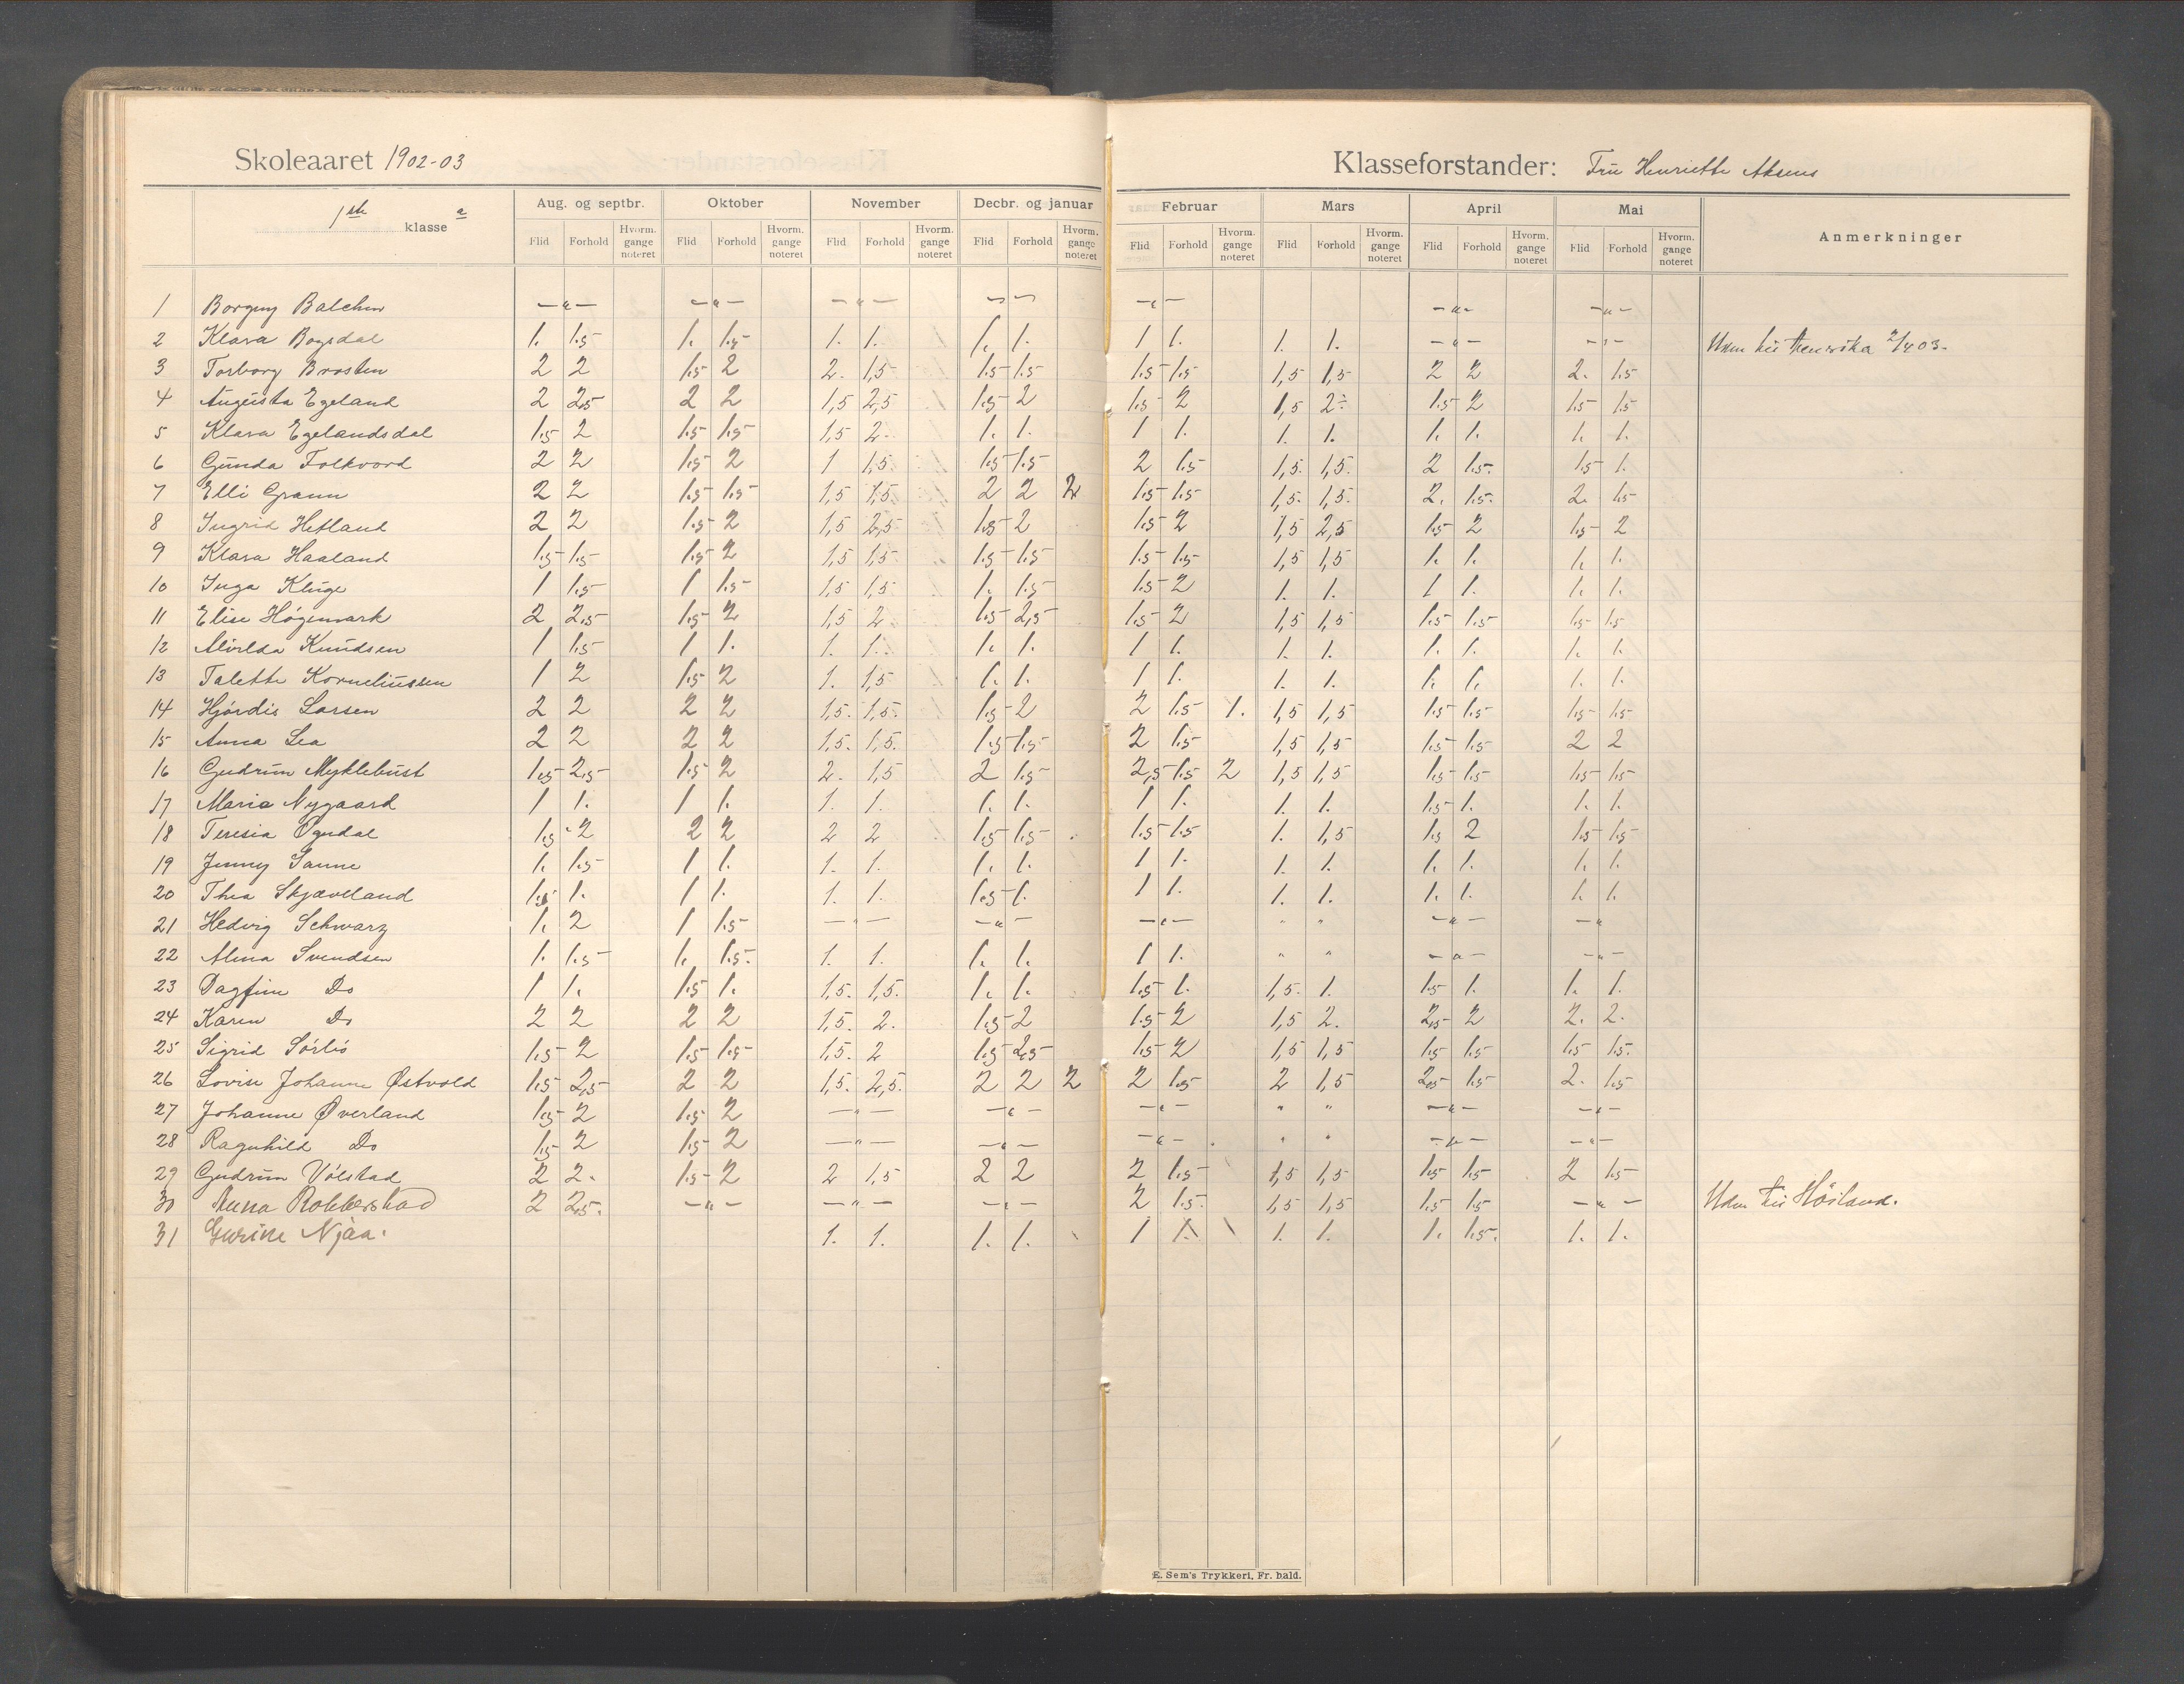 Skoleaaret 1902-03
Klasseforstander: Frü Henriette
1ste klasse a
Aug. og septbr. Oktober November Decbr. og januar Februar Mars April Mai Anmerkninger
Flid Forhold Hvorm. gange noteret Flid Forhold Hvorm. gange noteret Flid Forhold Hvorm. gange noteret Flid Forhold Hvorm. gange noteret Flid Forhold Hvorm. gange noteret Flid Forhold Hvorm. gange noteret Flid Forhold Hvorm. gange noteret Flid Forhold Hvorm. gange noteret
1 Borgny Balchen —"— —"— —"— —"— —"— —"— —"—
2 Klara Bogsdal 1. 1.5 1. 1.5 1. 1. 1. 1. 1 1. 1. 1. —"— —"— 2/4 03.
3 Torborg Brosten 2 2 1.5 2 2. 1,5 1.5 1.5 1.5 1.5 1,5 1,5 2 2 2. 1.5
4 Augüsta Egeland 2 2.5 2 2 1,5 2,5 1.5 2 1.5 2 1,5 2÷ 1.5 2 1.5 1.5
5 Klara Egelandsdal 1.5 2 1.5 1.5 1,5 2. 1. 1. 1 1. 1. 1. 1. 1. 1. 1.
6 Günda Folkvord 2 2 1.5 2 1 1,5. 1.5 1.5 2 1.5 1,5. 1,5. 2 1.5. 1.5 1.
7 Elli Grann 2 2 1.5 1.5 1,5 1,5. 2 2 2 1.5 1.5 1,5. 1,5. 2. 1.5. 2. 1.5
8 Ingrid Hetland 2 2 1.5 2 1,5 2,5 1.5 2 1.5 2 1,5 2,5 1.5 2 1.5 2
9 Klara Haaland 1.5 1.5 1.5 2 1,5 1,5 1.5 1.5 1.5 1.5 1,5 1,5 1. 1. 1. 1.
10 Inga Klüge 1 1.5 1 1.5 1,5 1,5 1. 1.5 1.5 2 1. 1. 1 1. 1. 1.
11 Elise Høgemark 2 2.5 1.5 2 1,5 2 1.5 2.5 1.5 2 1,5 1,5 1.5 1.5 1.5 1.5
12 Knüdsen 1 1.5 1 1. 1. 1. 1. 1. 1 1. 1. 1. 1. 1. 1. 1.
13 Talette Korneliüssen 1 2 1.5 2 1. 1,5 1. 1. 1 1. 1. 1. 1. 1. 1. 1.
14 Hjørdis Larsen 2 2 2 2 1,5. 1,5. 1.5 2 2 1.5 1. 1,5 1,5 1.5 1.5 1.5 1.5
15 Anna Lea 2 2 2 2 1,5. 1,5. 1.5 1.5 2 1.5 1,5 1,5 1.5 1.5 2 2
16 Gudrün Myklebüst 1.5 2.5 1.5 2 2. 1,5 2 1.5 2,5 1.5 2 1,5 1,5 1.5 1.5 1.5 1.5
17 Maria Nygaard 1 1. 1 1. 1. 1. 1. 1. 1 1. 1. 1. 1.5 1. 1. 1.
18 Teresia Øgndal 1.5 2 2 2 2 2 1.5 1.5 1.5 1.5 1. 1,5 1.5 2 1.5 1.5
19 Jenny Sanne 1. 1.5 1 1. 1. 1. 1. 1. 1 1. 1. 1. 1. 1. 1. 1.
20 Thea Skjæveland 1.5 1. 1 1. 1. 1. 1.5 1. 1 1. 1. 1. 1. 1. 1. 1.
21 Hedvig Schwarz 1. 2 1 1.5 —"— —"— —"— " " —"— —"
22 Alma Svendsen 1. 1.5 1. 1.5. 1. 1. 1. 1. 1 1. " " —"— —"—
23 Dagfinn Do 1 1. 1.5 1. 1,5. 1,5. 1. 1. 1.5 1. 1,5. 1. 1.5 1. 1. 1.
24 Karen Do 2 2 2 2 1,5. 2. 1.5 2 1.5 2 1,5 2. 2.5 2 2. 2.
25 Sigrid Sørlis 1.5 2 1.5 1.5 1,5. 2 1.5 2.5 1.5 2 1,5 1,5 1.5 1.5 1.5 1.5.
26 Lovise Johanne Østvold 1.5 2.5 2 2 1,5. 2,5. 2 2 2 2 1.5 2 1,5 2.5 1.5 2. 1.5
27 Johanne Øverland 1.5 2 1.5 2 —"— —"— —"— " " —"— —"—
28 Ragnhild Do 1.5 2 1.5 2 —"— —"— —"— " " —"— —"—
29 Gudrün Vølstad 2 2. 1.5 2 2 1,5 2 2 2 1.5 1,5 1,5 1.5 1.5 2 1.5
30 Anna Robberstad 2 2.5. —"— —"— —"— 2 1.5. 1,5 1,5 1.5 1.5 —"—
31 Gurine Njaa. 1. 1. 1. 1. 1 1. 1. 1. 1. 1.5. 1. 1.
E. Sem's Trykkeri, Fr. hald.